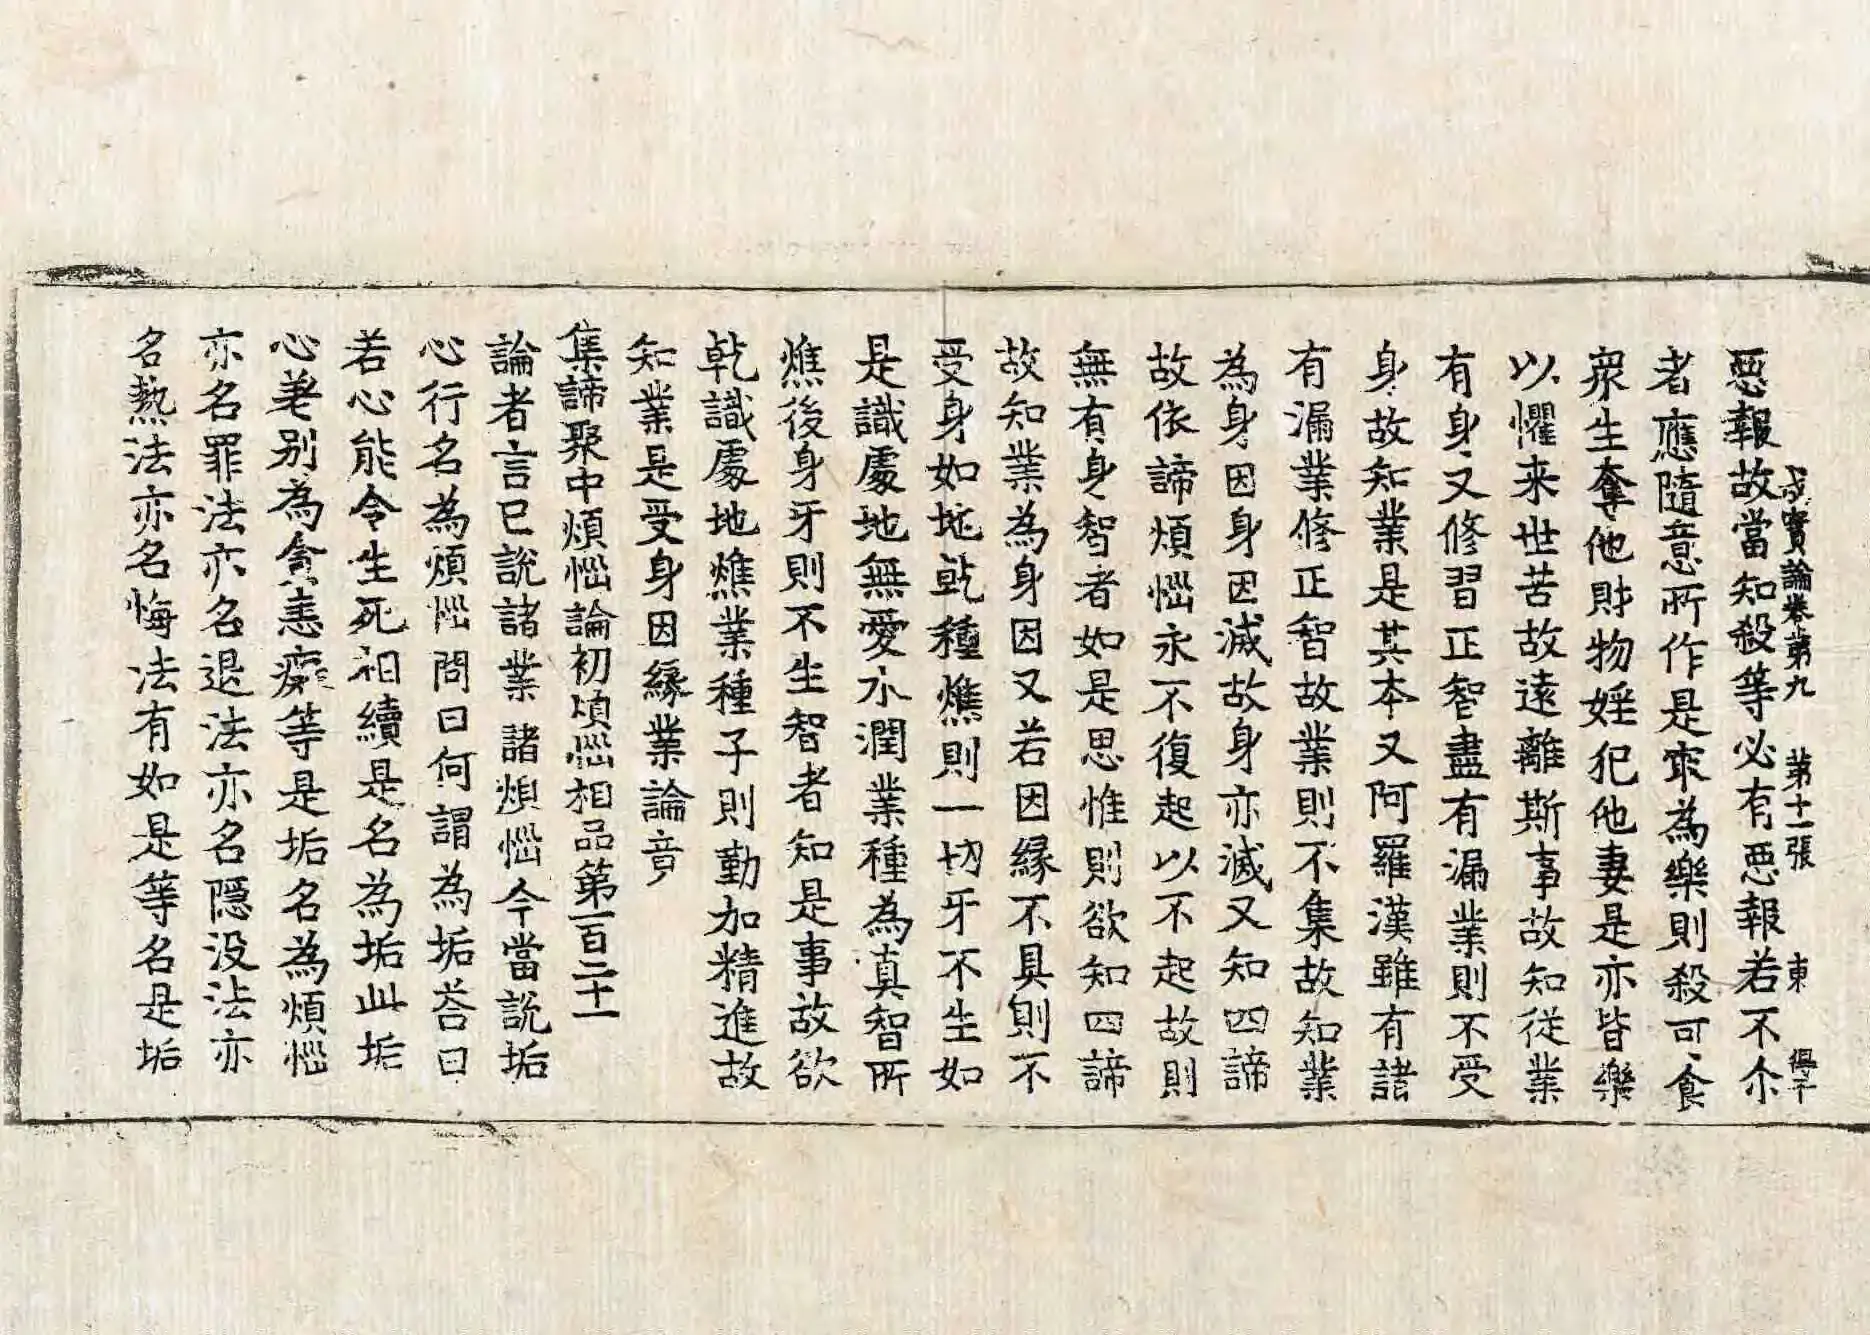 成實論卷第九 第十一張 東 得午
惡報故當知殺等必有惡報若不尒
者應隨意所作是衆為樂則殺可食
衆生奪他財物婬犯他妻是亦皆樂
以懼来世苦故遠離斯事故知從業
有身又修習正智盡有漏業則不受
身故知業是其本又阿羅漢雖有諸
有漏業修正智故業則不集故知業
為身因身因滅故身亦滅又知四諦
故依諦煩惱永不復起以不起故則
無有身智者如是思惟則欲知四諦
故知業為身因又若因緣不具則不
受身如地乾種燋則一切牙不生如
是識處地無愛水潤業種為真智所
燋後身牙則不生智者知是事故欲
乾識處地燋業種子則勤加精進故
知業是受身因緣業論竟
集諦聚中煩惱論初煩惱相品第一百二十一
論者言已說諸業諸煩惱今當說垢
心行名為煩惱問曰何謂為垢荅曰
若心能令生死相續是名為垢此垢
心差別為貪恚癡等是垢名為煩惱
亦名罪法亦名退法亦名隱没法亦
名熱法亦名悔法有如是等名是垢